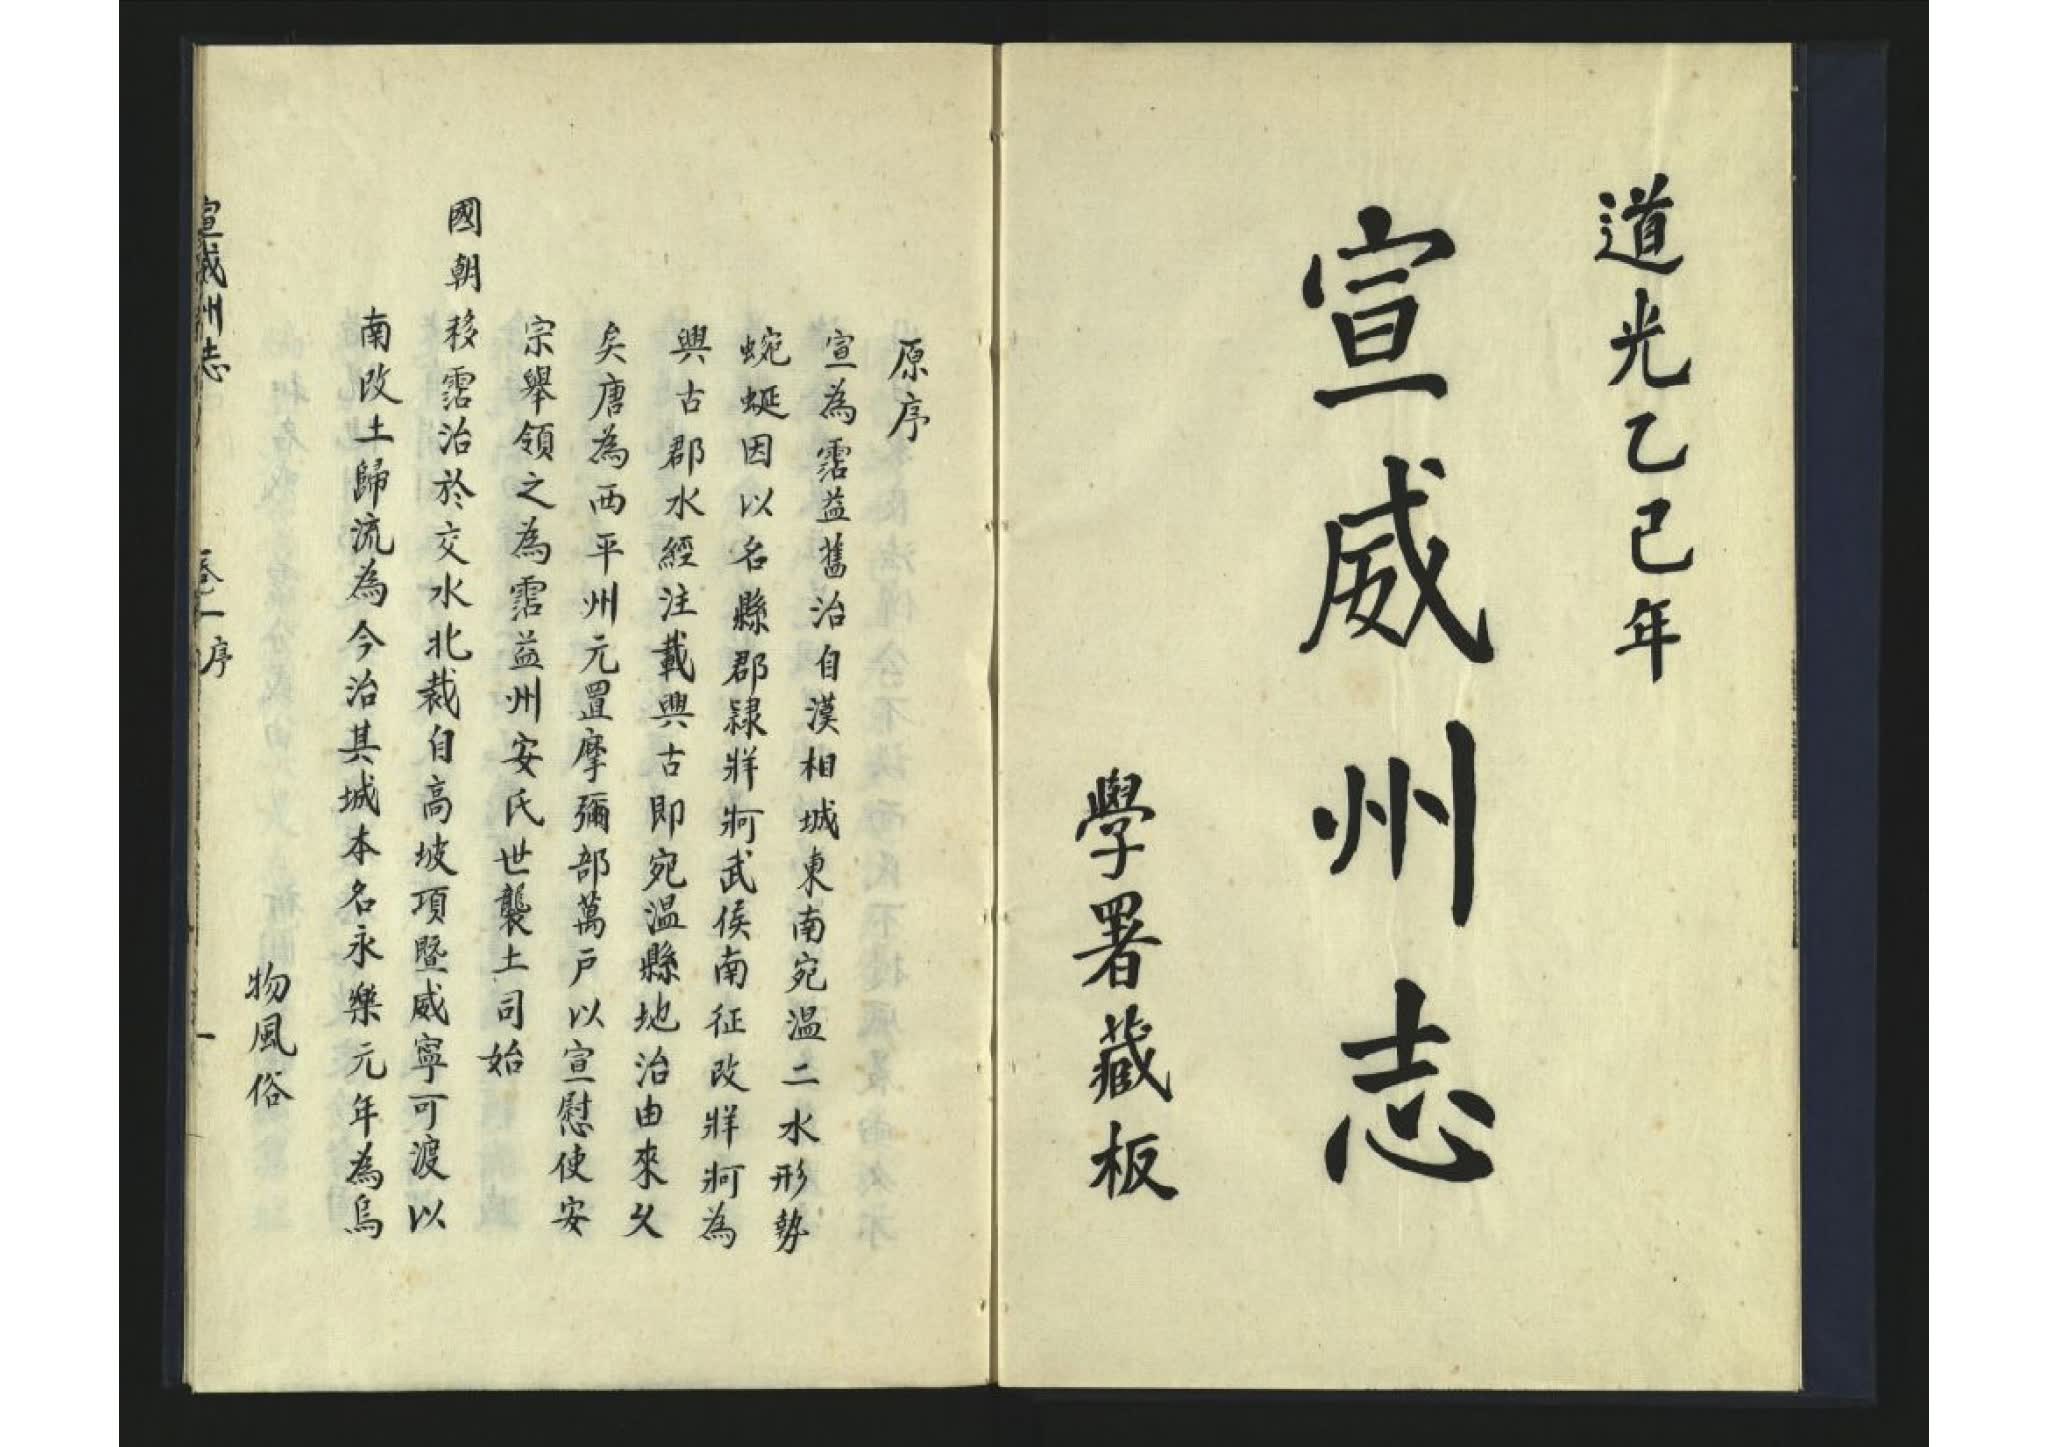 道光乙巳年
宣威州志
學署藏板
原序
宣為霑益舊治自漢相城東南宛温二水形勢
蜿蜒因以名縣郡隸牂牁武侯南征改牂牁為
興古郡水經注載興古即宛温縣地治由來久
矣唐為西平州元置摩彌部萬戶以宣慰使安
宗舉領之為霑益州安氏世襲土司始
國朝移霑治於交水北裁自高坡項暨威寧可渡以
南改土歸流為今治其城本名永樂元年為烏
物風俗
宣威州志 卷一序 一